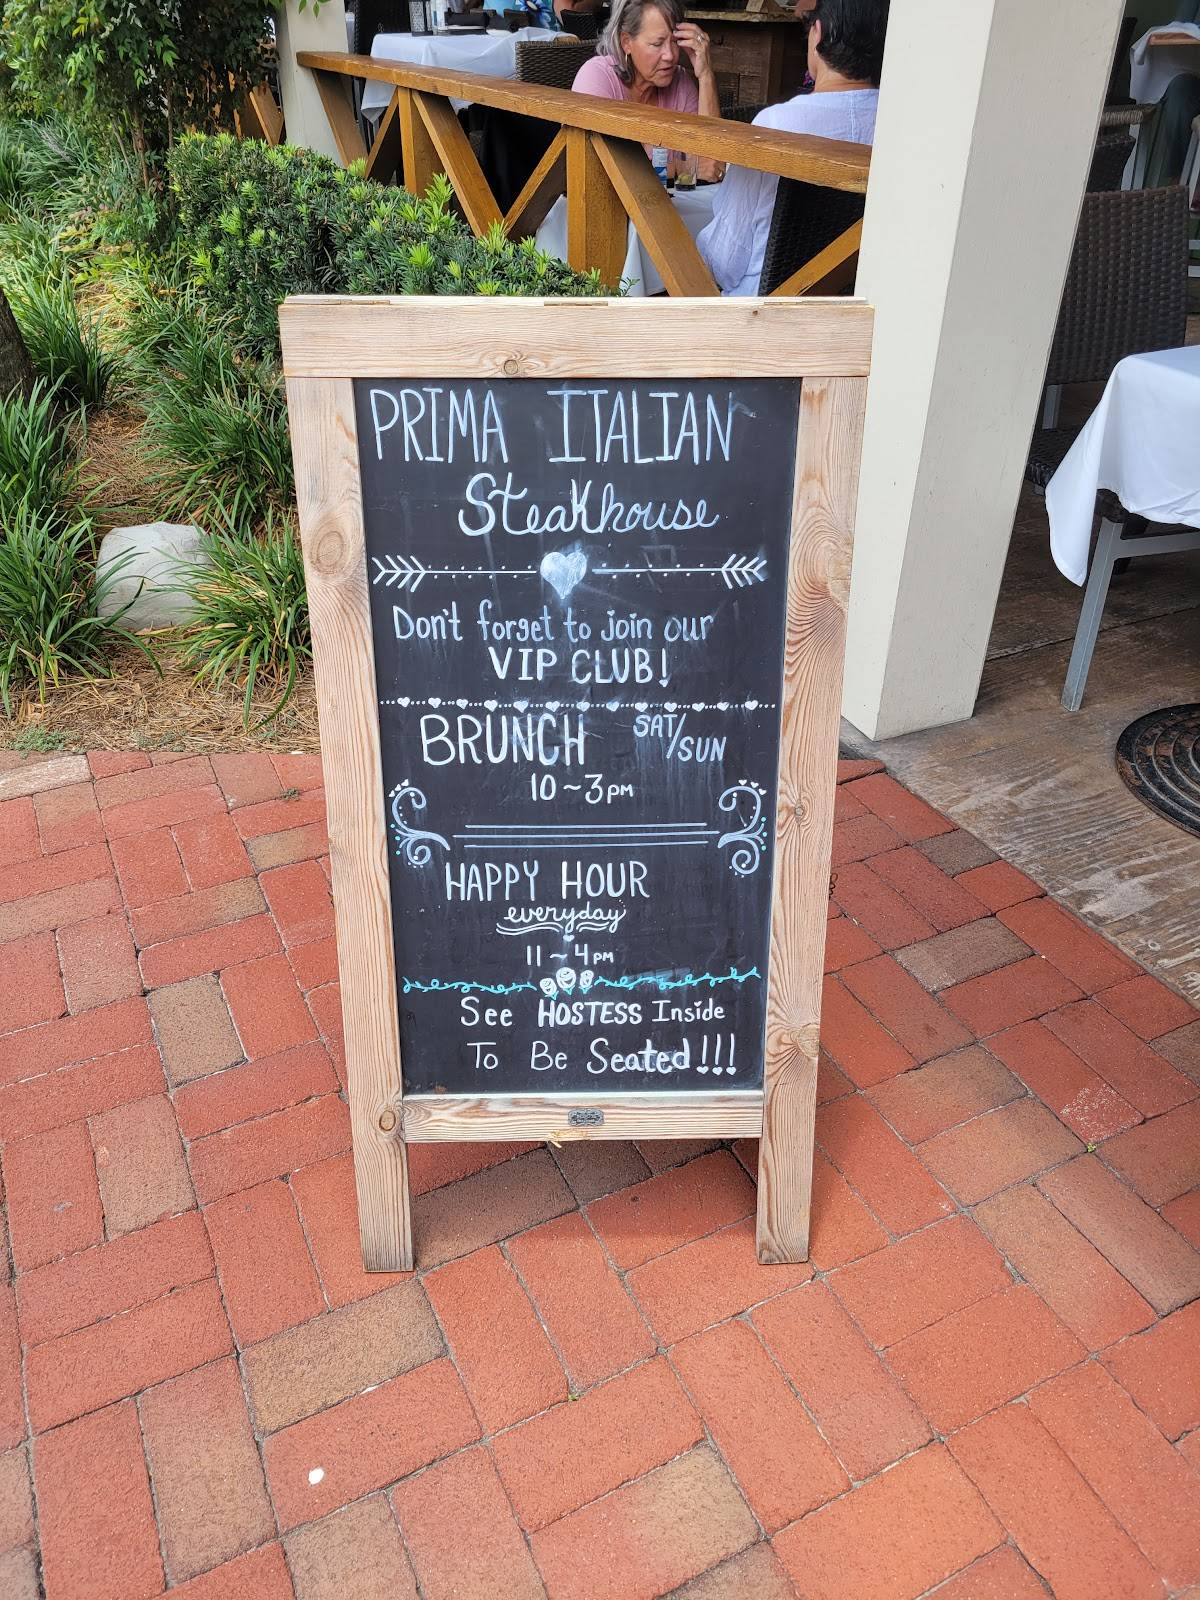 PRIMA ITALIAN
Steakhouse
Don't forget to join our
VIP CLUB!
BRUNCH SAT/SUN
10~3PM
HAPPY HOUR
everyday
11~4PM
See HOSTESS Inside
To Be Seated!!!